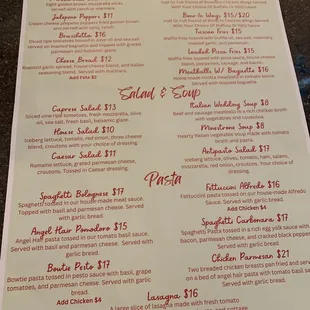 Eight golden brown mozzarella sticks.
Served with
Jalapeno Poppers $11
cream cheese jalapeno poppers fried golden
brown and served with
Bruschetta $16
Diced ripe tomatoes
olive oil and
served on toasted baguette and topped with grated
parmesan and balsamic glaze
Cheese Bread $12
Roasted garlic spread, house cheese blend, and Italian
seasoning blend. Served with marinara.
Add Pesto $2
Bone-In Wings $15/$20
With Your Choice Of Buffalo Or BBQ Sauce
Tuscan Fries $15
Waffle fries
roasted garlic and parmesan.
Loaded Pizza Fries $15
Waffle fries topped with pizza sauce, house cheese
blend, pepperoni, sausage, and bacon.
Meatballs W/ Baguette $16
House made
meatballs in tomato basil
sauce. Served with toasted baguette.
Salad & Soup
Caprese Salad $13
Sliced vine ripe tomatoes, fresh mozzarella, olive
oil, sea salt, fresh basil, balsamic glaze.
House Salad $10
Iceberg lettuce, tomato, red onion, three cheese
blend, croutons. Your choice of dressing.
Caesar Salad $11
Romaine lettuce, grated parmesan cheese,
croutons. Tossed in Caesar dressing.
Italian Wedding Soup $8
Beef and sausage meatballs in a rich chicken broth
with vegetables and
Minestrone Soup $8
Hearty Italian vegetable soup made with tomato
broth and pasta.
Antipasto Salad $17
Iceberg lettuce, olives, tomato, ham, salami,
mozzarella, red onion, croutons. Your choice of
dressing.
Pasta
Spaghetti Bolognese $17
Spaghetti tossed in our house-made meat sauce.
Topped with basil and parmesan cheese. Served
with garlic bread.
Angel Hair Pomodoro $15
Angel Hair pasta tossed in our tomato basil sauce.
Served with basil and parmesan cheese. Served with
garlic bread.
Bowtie Pesto $17
Bowtie pasta tossed in pesto sauce with basil, grape
tomatoes, and parmesan cheese. Served with garlic
bread.
Add Chicken $4
Fettuccini Alfredo $16
Fettuccini pasta tossed in our house-made Alfredo
Sauce. Served with garlic bread.
Add Chicken $4
Spaghetti Carbonara $17
Spaghetti pasta tossed in a rich egg yolk sauce with
bacon, parmesan cheese, and cracked black pepper.
Served with garlic bread.
Chicken Parmesan $21
Two breaded chicken breasts pan fried and served
on a bed of angel hair pasta with tomato basil sauce.
Served with garlic bread.
Lasagna $16
A large slice of lasagna made with fresh tomato